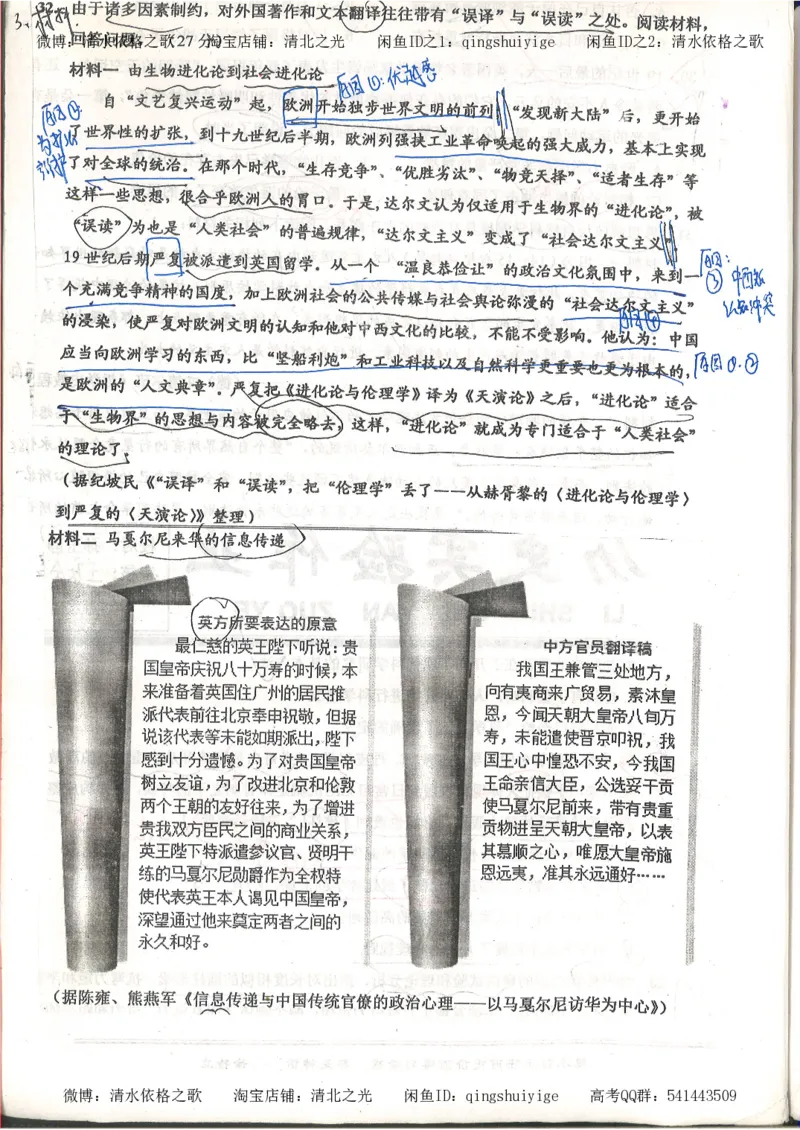 3.材料
32.由于诸多因素制约，对外国著作和文本翻译往往带有“误译”与“误读”之处。阅读材料，
回答问题。（27分）
微博：清水依格之歌 淘宝店铺：清北之光 闲鱼ID之1：qingshuiyige 闲鱼ID之2：清水依格之歌
材料一 由生物进化论到社会进化论
原因①：优越感
自“文艺复兴运动”起，欧洲开始独步世界文明的前列，“发现新大陆”后，更开始
原因②：
了世界性的扩张，到十九世纪后半期，欧洲列强挟工业革命唤起的强大威力，基本上实现
了对全球的统治。在那个时代，“生存竞争”、“优胜劣汰”、“物竞天择”、“适者生存”等
这样一些思想，很合乎欧洲人的胃口。于是，达尔文认为仅适用于生物界的“进化论”，被
“误读”为也是“人类社会”的普遍规律，“达尔文主义”变成了“社会达尔文主义”
19世纪后期严复被派遣到英国留学。从一个“温良恭俭让”的政治文化氛围中，来到一
原因：
③中西
冲突
个充满竞争精神的国度，加上欧洲社会的公共传媒与社会舆论弥漫的“社会达尔文主义”
的浸染，使严复对欧洲文明的认知和他对中西文化的比较，不能不受影响。他认为：中国
应当向欧洲学习的东西，比“坚船利炮”和工业科技以及自然科学更重要也更为根本的，
是欧洲的“人文典章”。严复把《进化论与伦理学》译为《天演论》之后，“进化论”适合
于“生物界”的思想与内容被完全略去，这样，“进化论”就成为专门适合于“人类社会”
的理论了。
（据纪坡民《“误译”和“误读”，把“伦理学”丢了——从赫胥黎的〈进化论与伦理学〉
到严复的〈天演论〉》整理）
材料二 马戛尔尼来华的信息传递
英方所要表达的原意
最仁慈的英王陛下听说：贵
国皇帝庆祝八十万寿的时候，本
来准备着英国住广州的居民推
派代表前往北京奉申祝敬，但据
说该代表等未能如期派出，陛下
感到十分遗憾。为了对贵国皇帝
树立友谊，为了改进北京和伦敦
两个王朝的友好往来，为了增进
贵我双方臣民之间的商业关系，
英王陛下特派遣参议官、贤明干
练的马戛尔尼勋爵作为全权特
使代表英王本人谒见中国皇帝，
深望通过他来奠定两者之间的
永久和好。
中方官员翻译稿
我国王兼管三处地方，
向有夷商来广贸易，素沐皇
恩，今闻天朝大皇帝八旬万
寿，未能遣使晋京叩祝，我
国王心中惶恐不安，今我国
王命亲信大臣，公选妥干贡
使马戛尔尼前来，带有贵重
贡物进呈天朝大皇帝，以表
其慕顺之心，唯愿大皇帝施
恩远夷，准其永远通好……
（据陈雍、熊燕军《信息传递与中国传统官僚的政治心理——以马戛尔尼访华为中心》）
微博：清水依格之歌 淘宝店铺：清北之光 闲鱼ID：qingshuiyige 高考QQ群：541443509